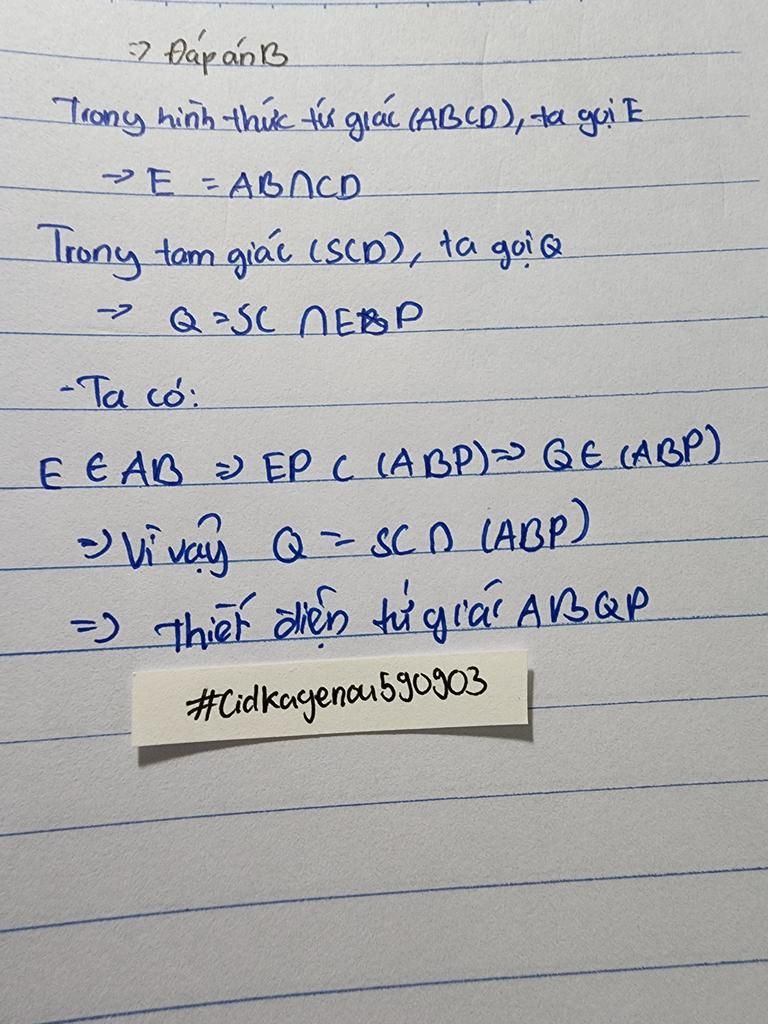 => Đáp án B
Trong hình thức tứ giác (ABCD), ta gọi E
-> E = AB∩CD
Trong tam giác (SCD), ta gọi Q
-> Q = SC ∩ EP
- Ta có:
E ∈ AB => EP ⊂ (ABP) => Q ∈ (ABP)
=> Vì vậy Q = SC ∩ (ABP)
=> Thiết diện tứ giác ABQP
#Cidkagenou590903